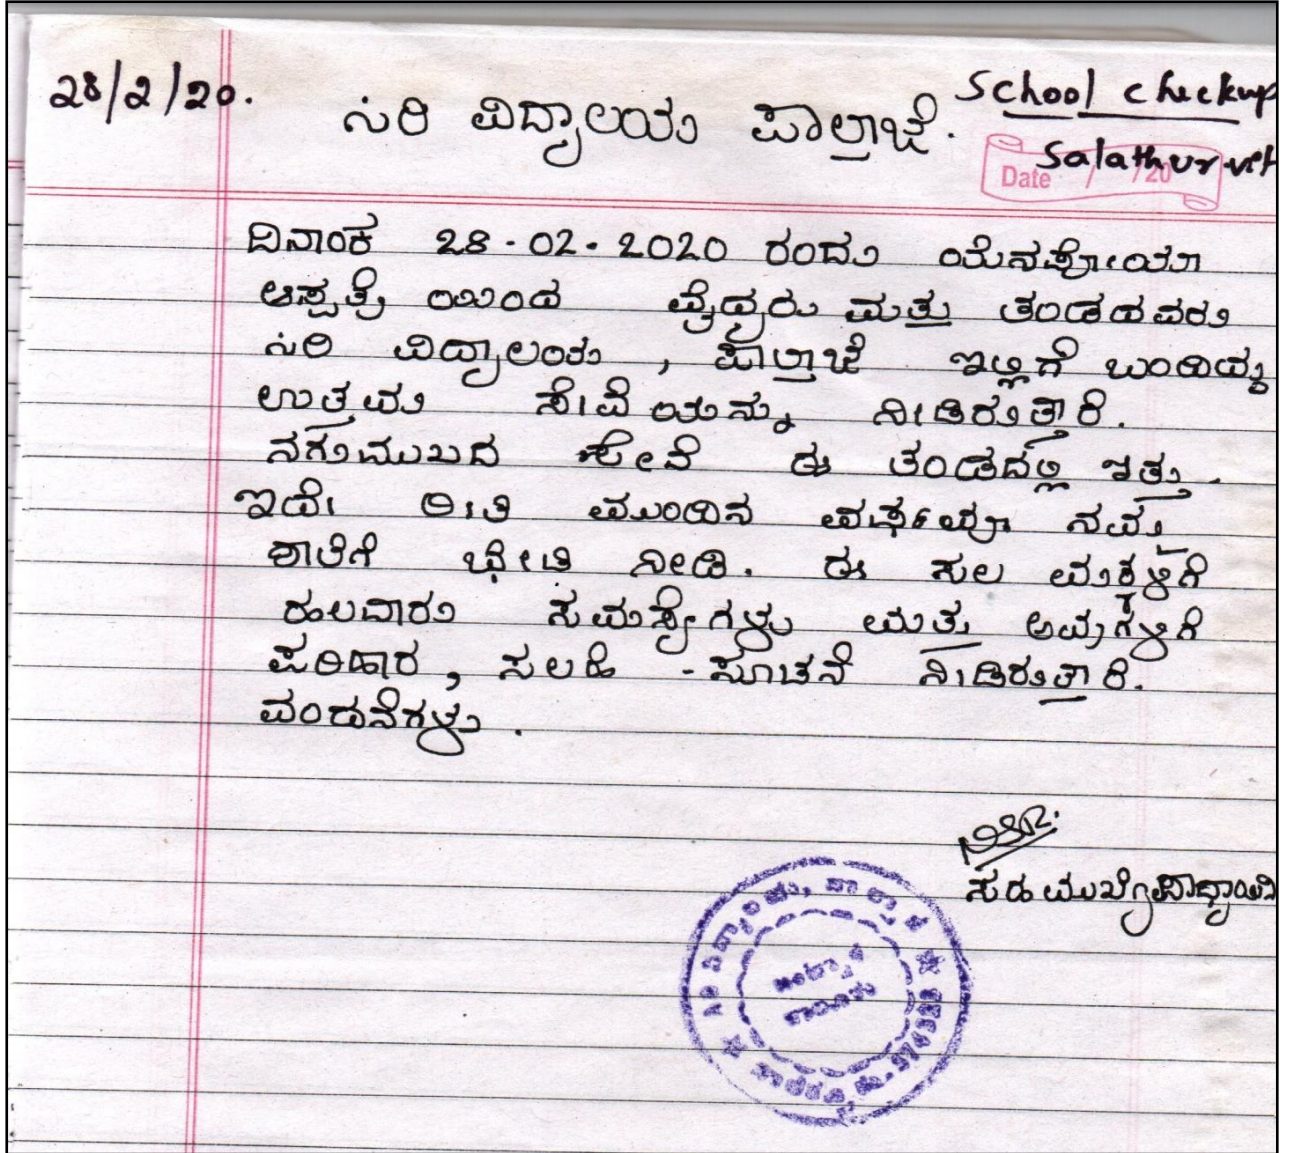 28/2/20.
ಸಿರಿ ವಿದ್ಯಾಲಯ ಪಾಲ್ತಾಜೆ.
School checkup
Salathur
Date / /20
ದಿನಾಂಕ 28-02-2020 ರಂದು ಯೆನಪೋಯಾ
ಆಸ್ಪತ್ರೆ ಯಿಂದ ವೈದ್ಯರು ಮತ್ತು ತಂಡದವರು
ಸಿರಿ ವಿದ್ಯಾಲಯ, ಪಾಲ್ತಾಜೆ ಇಲ್ಲಿಗೆ ಬಂದಿದ್ದು
ಉತ್ತಮ ಸೇವೆಯನ್ನು ನೀಡಿರುತ್ತಾರೆ.
ನಗುಮುಖದ ಸೇವೆ ಈ ತಂಡದಲ್ಲಿ ಇತ್ತು.
ಇದೇ ರೀತಿ ಮುಂದಿನ ವರ್ಷವೂ ನಮ್ಮ
ಶಾಲೆಗೆ ಭೇಟಿ ನೀಡಿ. ಈ ಸಲ ಮಕ್ಕಳಿಗೆ
ಹಲವಾರು ಸಮಸ್ಯೆಗಳು ಮತ್ತು ಅವುಗಳಿಗೆ
ಪರಿಹಾರ, ಸಲಹೆ - ಸೂಚನೆ ನೀಡಿರುತ್ತಾರೆ.
ವಂದನೆಗಳು.
ಸಹ ಮುಖ್ಯೋಪಾಧ್ಯಾಯಿನಿ
ಸಿರಿ ವಿದ್ಯಾಲಯ, ಪಾಲ್ತಾಜೆ